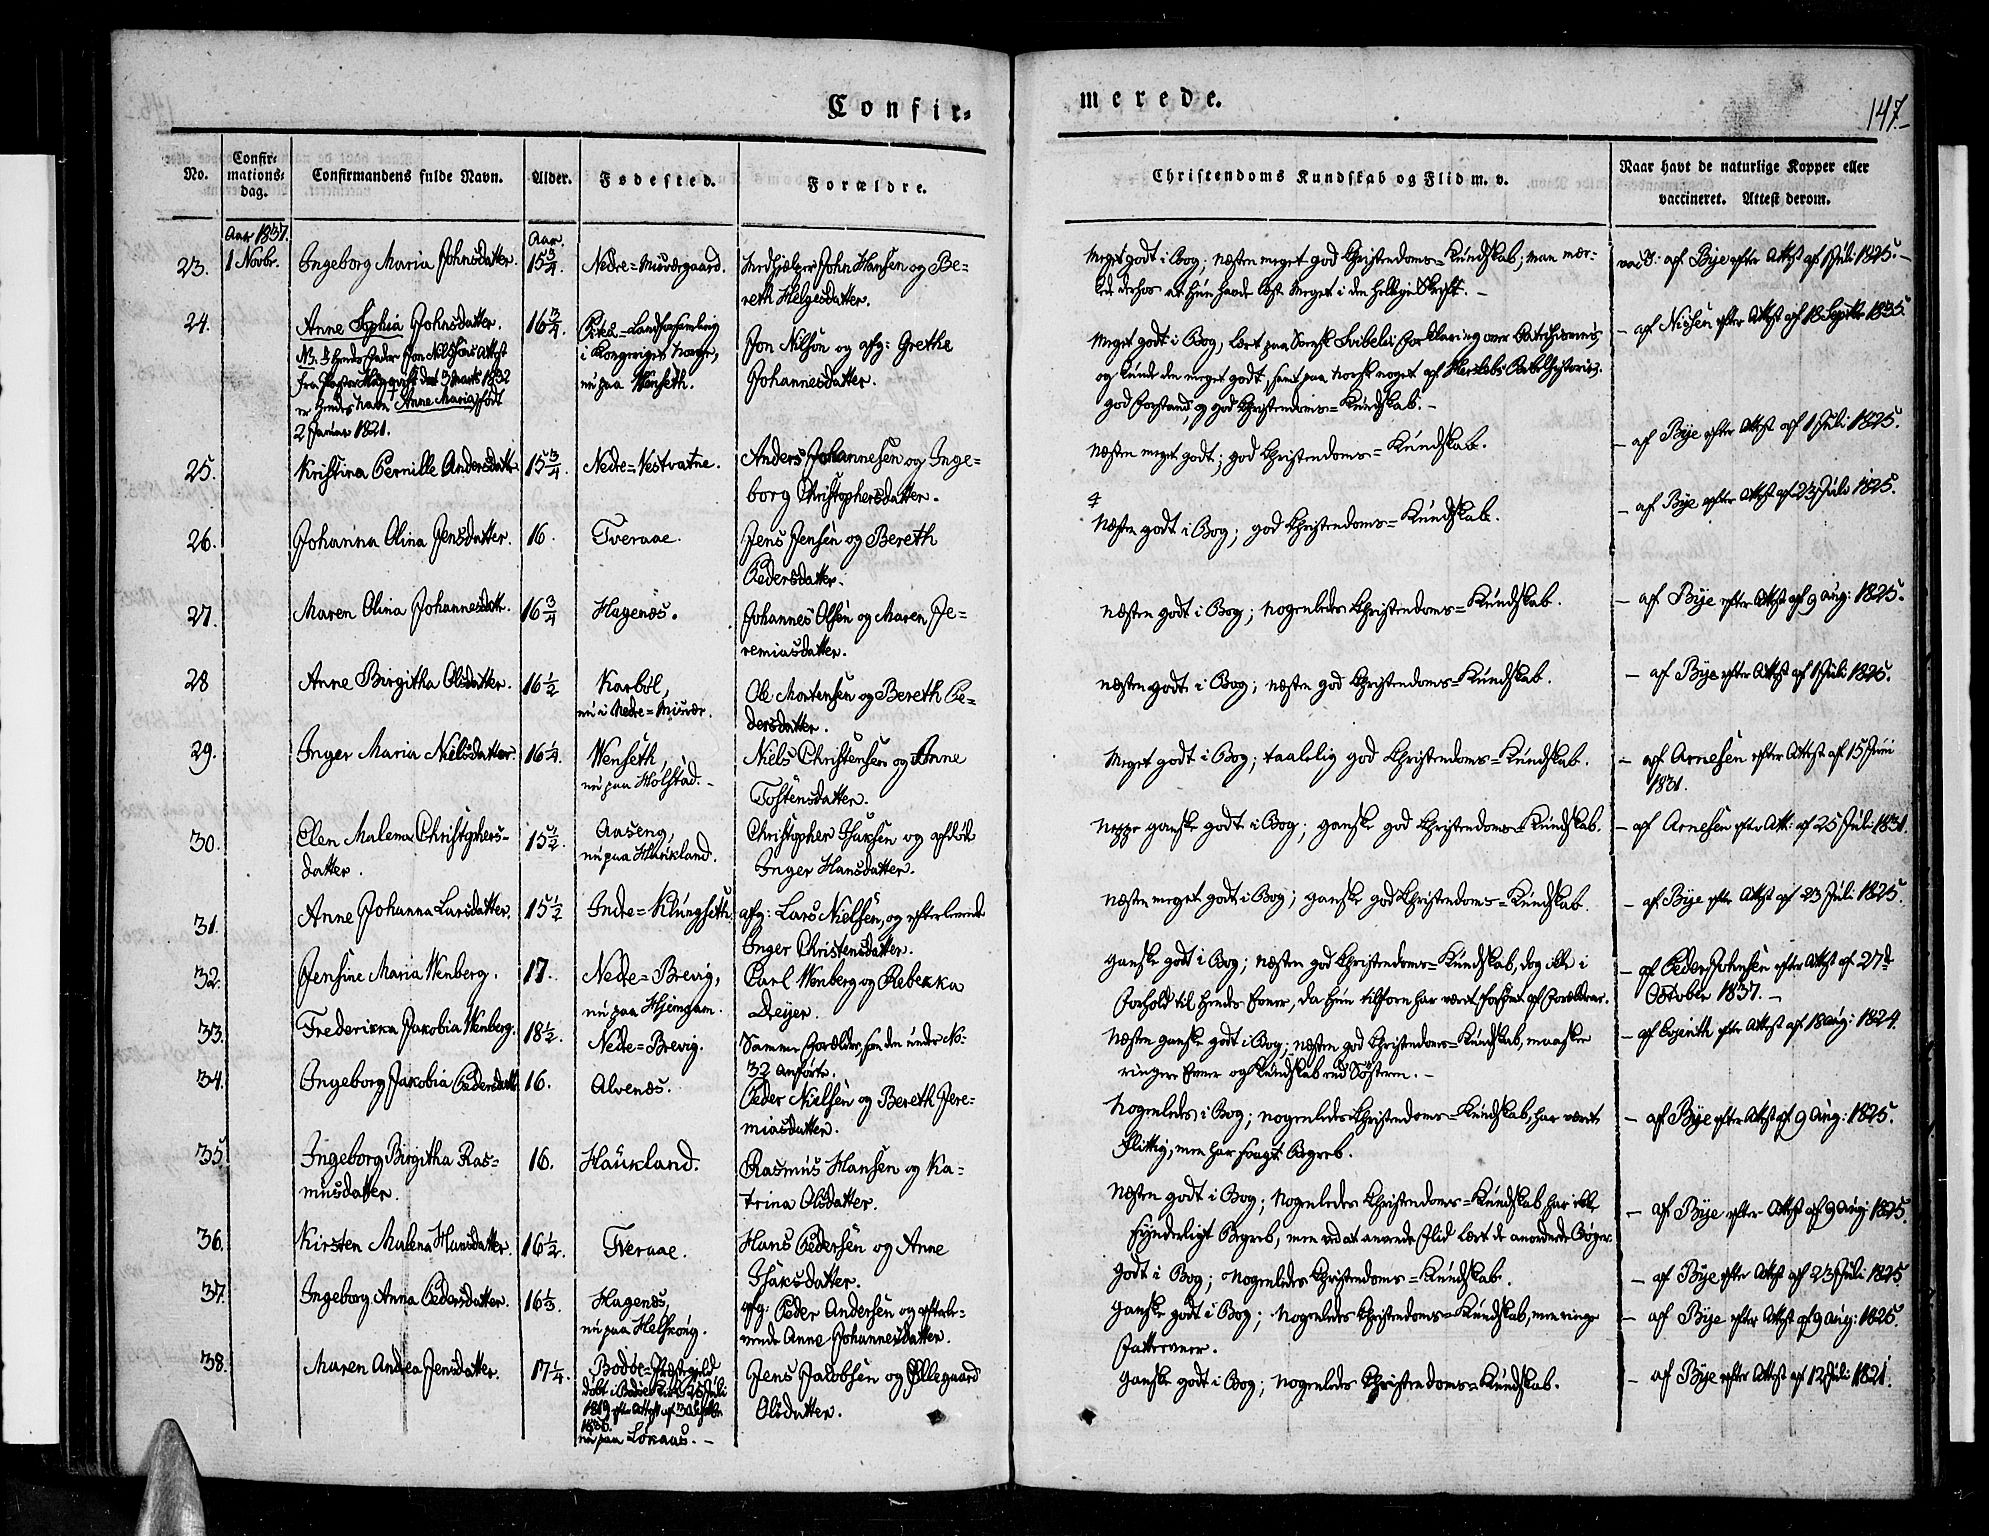 Confir-
merede.
147.
No.
Confir-
mations-
dag.
Confirmandens fulde Navn.
Alder.
Fødested.
Forældre.
Christendoms Kundskab og Flid m. v.
Naar havt de naturlige Kopper eller
vaccineret. Attest derom.
Aar 1837.
Aar.
23. 1 Novbr. Ingeborg Maria Johnsdatter. 15 3/4. Nedre=Misværgaard. Medhjælper John Hansen og Be-
reth Helgesdatter.
Meget godt i Bog; næsten meget god Christendoms=Kundskab; man mær-
kede derhos at hun havde læst meget i den hellige Skrift. -
vacc: af Bye efter Attest af 1 Juli 1825. -
24. Anne Sophia Johnsdatter. 16 3/4. Landforsamling
i Kongeriget Norge,
nu paa Wenseth.
Jon Nilsøn og afg: Grethe
Johannesdatter.
NB. I hendes Fader Jon Nilssøns Attest
fra Pastor dat 3 Marts 1832
er hendes Navn Anne Maria, født
2 Januar 1821.
Meget godt i Bog, lært paa Svensk Svibelii Forklaring over Catechismus,
og kunde den meget godt, samt paa norsk noget af Herslebs Bibelhistorie.
god Forstand, og god Christendoms=Kundskab. -
- af Nissen efter Attest af 18 Septbr 1835.
25. Kristina Pernille Andersdatter 15 3/4. Nedre=Vestvatne. Anders Johannesen og Inge-
borg Christophersdatter.
Næsten meget godt; god Christendoms=Kundskab.
- af Bye efter Attest af 1 Juli 1825.
26. Johanna Olina Jensdatter. 16. Tveraae. Jens Jensen og Bereth
Pedersdatter.
Næsten godt i Bog; god Christendoms=Kundskab.
- af Bye efter Attest af 23 Juli 1825.
27. Maren Olina Johannesdatt. 16 3/4 Hagenæs. Johannes Olsen og Maren Je-
remiasdatter.
Næsten godt i Bog; nogenledes Christendoms=Kundskab.
- af Bye efter Attest af 9 Aug: 1825.
28 Anne Birgitha Olsdatter. 16 1/2 Karbøl,
nu i Nedre=Misvær.
Ole Mortensen og Bereth Pe-
dersdatter.
næsten godt i Bog; næsten god Christendoms=Kundskab.
- af Bye efter Attest af 1 Juli 1825.
29. Inger Maria Nielsdatter. 16 1/4. Wenseth,
nu paa Holstad. -
Niels Christensen og Anne
Tostensdatter.
Meget godt i Bog; taalelig god Christendoms=Kundskab.
- af Arnesen efter Attest af 15 Juni
1831.
30. Elen Malena Christophers-
datter.
15 1/2. Aaseng,
nu paa Haukland.
Christopher Isaksen og afdøde
Inger Hansdatter.
Neppe ganske godt i Bog; ganske god Christendoms=Kundskab.
- af Arnesen efter Att: af 25 Juli 1831.
31. Anne Johanna Larsdatter. 15 1/2 Indre=Klungseth. afg: Lars Nielsen, og efterlevende
Inger Christensdatter.
Næsten meget godt i Bog; ganske god Christendoms=Kundskab.
- af Bye efter Attest af 23 Juli 1825.
32. Jensine Maria Wenberg. 17. Nedre=Brevig,
nu paa Hjemgam.
Carl Wenberg og Rebekka
Dreyer.
ganske godt i Bog; næsten god Christendoms=Kundskab, dog ikke i
Forhold til hendes Evner, da hun tilforn har været forsømt af Forældrene.
- af Peder Johnsen efter Attest af 27de
October 1837. -
33. Frederikka Jakobia Wenberg. 18 1/2. Nedre=Brevig. Samme Forældre, som den under No-
32 anførte.
Næsten ganske godt i Bog; næsten god Christendoms=Kundskab, maaskee
ringere Evner og Kundskab end Søsteren. -
- af efter Attest af 18 Aug: 1824.
34. Ingeborg Jakobia Pedersdatt 16. Alvenæs. Peder Nielsen og Bereth Jere-
miasdatter.
Nogenledes i Bog; nogenledes Christendoms=Kundskab, har været
flittig, men har svagt Begreb.
- af Bye efter Attest af 9 Aug: 1825.
35. Ingeborg Birgitha Ras-
musdatter.
16. Haukland. Rasmus Hansen og Ka-
trina Olsdatter.
Næsten godt i Bog; nogenledes Christendoms=Kundskab, har ikke
synderligt Begreb, men ved at anvende Flid lært de anordnede Bøger.
- af Bye efter Attest af 9 Aug: 1825.
36. Kirsten Malena Hansdatter. 16 1/2. Tveraae. Hans Pedersen og Anne
Isaksdatter.
Godt i Bog; nogenledes Christendoms=Kundskab.
- af Bye efter Attest af 23 Juli 1825
37. Ingeborg Anna Pedersdatter. 16 1/3. Hagenæs,
nu paa Helskoug.
afg: Peder Andersen og efterle-
vende Anne Johannesdatter.
Ganske godt i Bog; nogenledes Christendoms=Kundskab, men ringe
Fatteevner.
- af Bye efter Attest af 9 Aug: 1825.
38. Maren Andrea Jensdatter. 17 1/4. Bodøe=Præstegield
døbt i Bodøe Kirke 25 Juli
1819 efter Attest af 30 Septbr
1836.
nu paa Lønaas. -
Jens Jakobsen og Øllegaard
Olsdatter.
Ganske godt i Bog; nogenledes Christendoms=Kundskab.
- af Bye efter Attest af 12 Juli 1821.